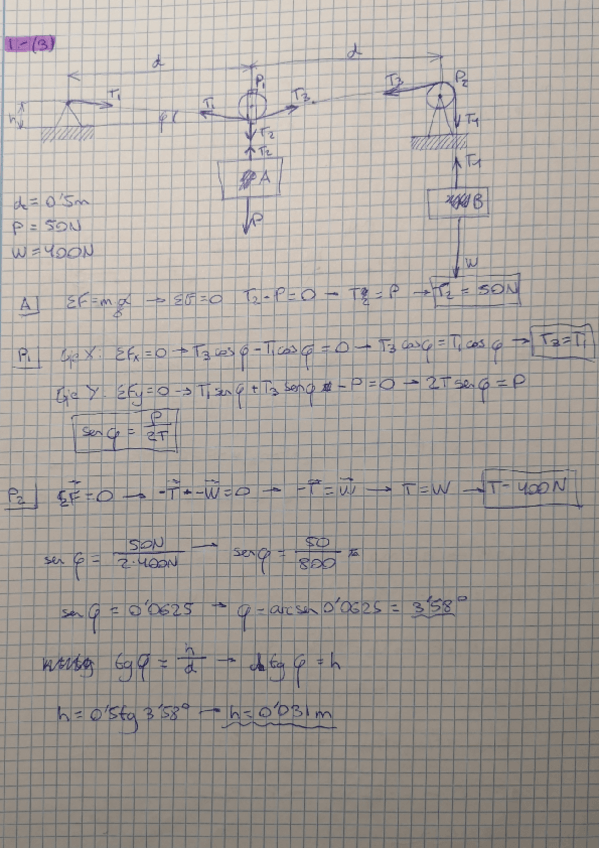 1-(3)
d d
T₁ T₁ P₁ T₃ T₃ P₂
h φ T₂ T₄
T₂ T₄
A B
P W
d = 0'5m
P = 50N
W = 400N
A| ΣF=m·a → ΣF=0 T₂-P=0 → T₂=P → T₂ = 50N
P₁| Eje X: ΣFx=0 → T₃cosφ-T₁cosφ=0 → T₃cosφ=T₁cosφ → T₃=T₁
Eje Y: ΣFy=0 → T₁senφ+T₃senφ-P=0 → 2Tsenφ=P
senφ = P/2T
P₂| ΣF=0 → -T-W=0 → -T=W → T=W → T=400N
senφ = 50N/2·400N → senφ = 50/800
senφ = 0'0625 → φ=arcsen 0'0625 = 3'58°
tgφ = h/d → d tgφ = h
h=0'5tg 3'58° → h=0'031m